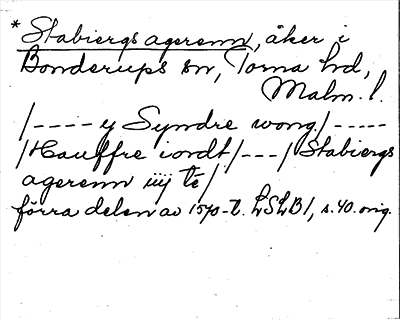 * Stabiergs agerenn, åker i
Bonderups sn, Torna hd,
Malm. l.
/---- y Syndre wong/-----
/Hauffre iordt/---/Stabiergs
agerenn iiij te/
förra delen av 1570-t. LSLB1, s. 40. orig.